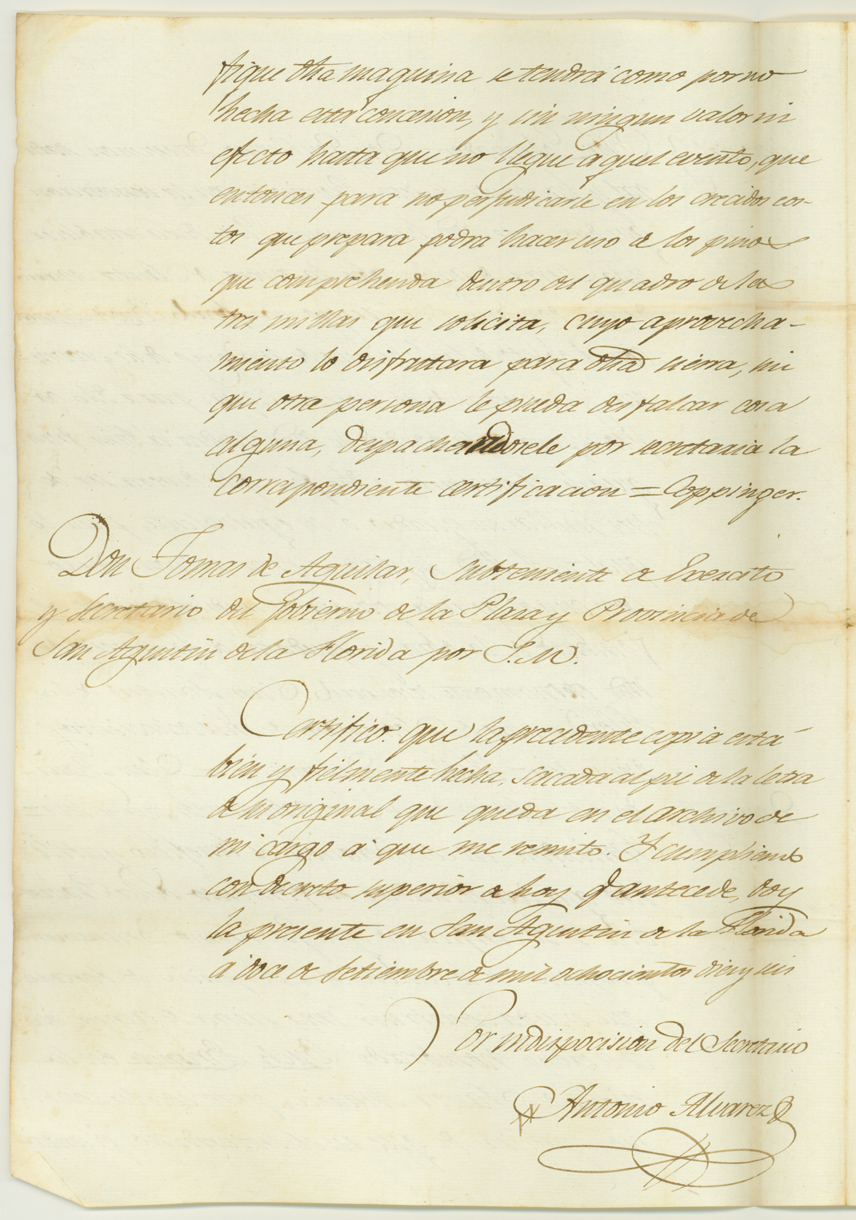 fique dha maquina se tendrá como por no
hecha esta concesion, y sin ningun valor ni
efecto hasta que no llegue aquel evento, que
entonces para no perjudicarle en los crecidos cos-
tos que prepara podrá hacer uso de los pinos
que comprehenda dentro del quadro de las
tres millas que solicita, cuyo aprovecha-
miento lo disfrutara para dha sierra, sin
que otra persona le pueda desfalcar cosa
alguna, despachandosele por secretaria la
correspondiente certificacion = Coppinger.
Don Tomas de Aguilar, Subteniente de Exercito
y Secretario del Gobierno de la Plaza y Provincia de
San Agustin de la Florida por S.M.
Certifico: que la precedente copia está
bien y fielmente hecha, sacada al pie de la letra
de su original que queda en el archivo de
mi cargo á que me remito. Y cumpliendo
con Decreto superior de hoy q.e antecede, doy
la presente en San Agustin de la Florida
á doce de Setiembre de mil ochocientos diez y seis
Por indisposicion del Secretario
Antonio Alvarez